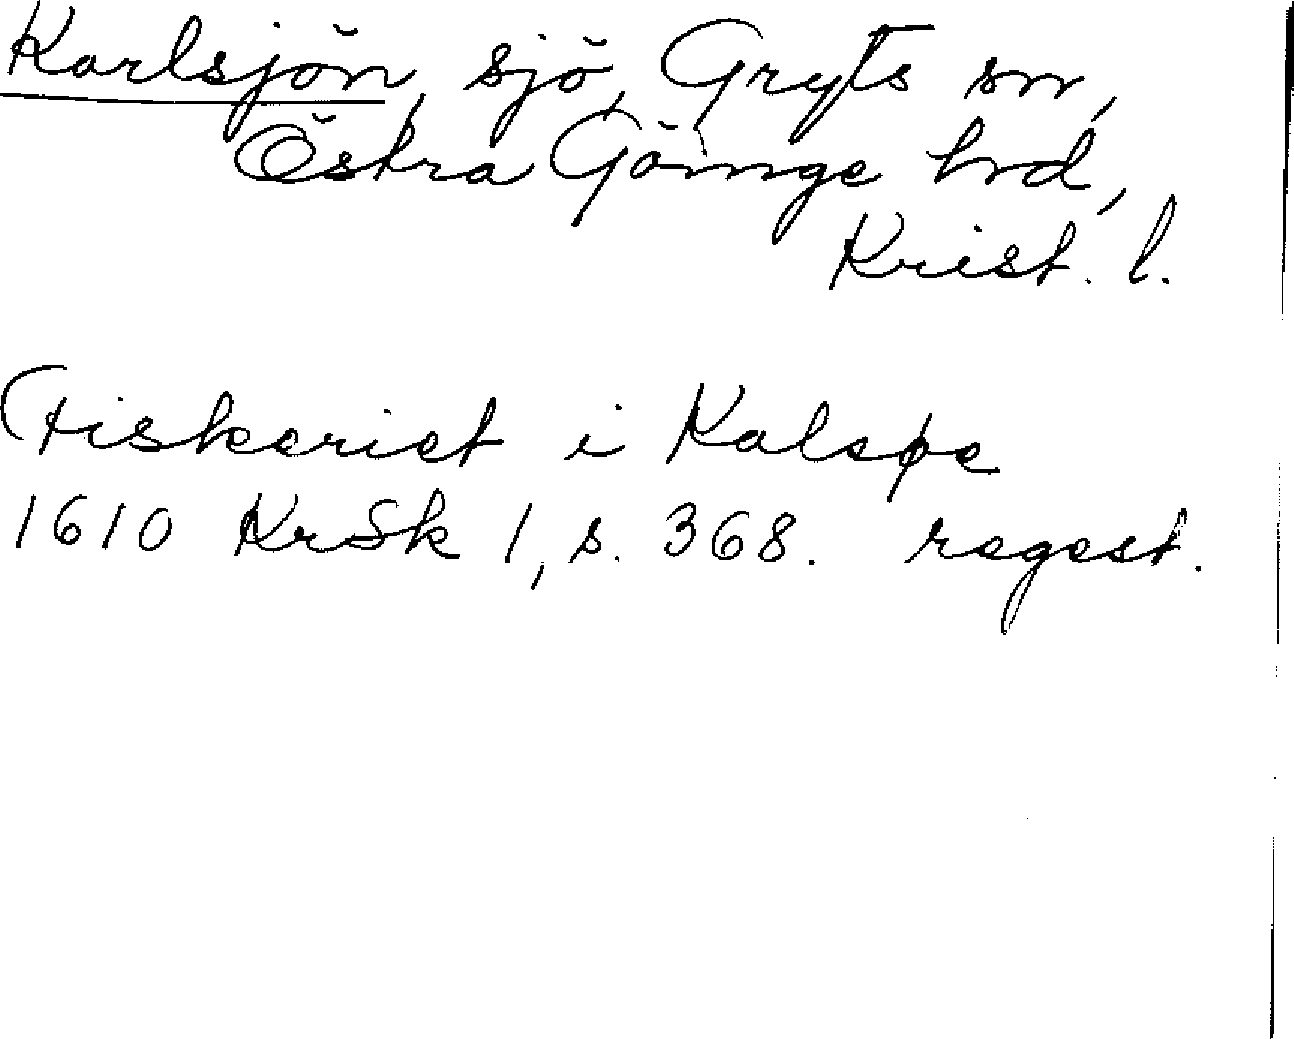 Karlsjön, sjö, Gryts sn,
Östra Göinge hrd,
Krist. l.
Fiskeriet i Kalsøe
1610 KrSk 1, s. 368. regest.